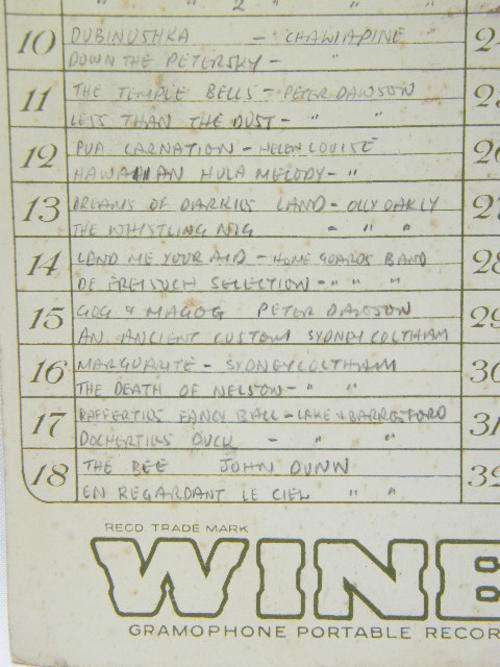 " " 2 " "
10 DUBINUSHKA - CHAWIAPINE 2
DOWN THE PETERSKY - "
11 THE TEMPLE BELLS - PETER DAWSON 2
LESS THAN THE DUST - " "
12 PUA CARNATION - HELEN LOUISE 26
HAWAIIAN HULA MELODY - "
13 DREAMS OF DARKIES LAND - OLLY OAKLY 27
THE WHISTLING - " "
14 LEND ME YOUR AID - HOME GUARDS BAND 28
DE FREISCUH SELECTION - " " "
15 GOG & MAGOG PETER DAWSON 29
AN ANCIENT CUSTOM SYDNEY COLTHAM
16 MARGUARITE - SYDNEY COLTHAM 30
THE DEATH OF NELSON - " "
17 RAFFERTIES FANCY BALL - LAKE & 31
DOCHERTIES DUCK - " "
18 THE BEE JOHN DUNN 32
EN REGARDANT LE CIEL " "
REGD TRADE MARK
WINE
GRAMOPHONE PORTABLE RECOR